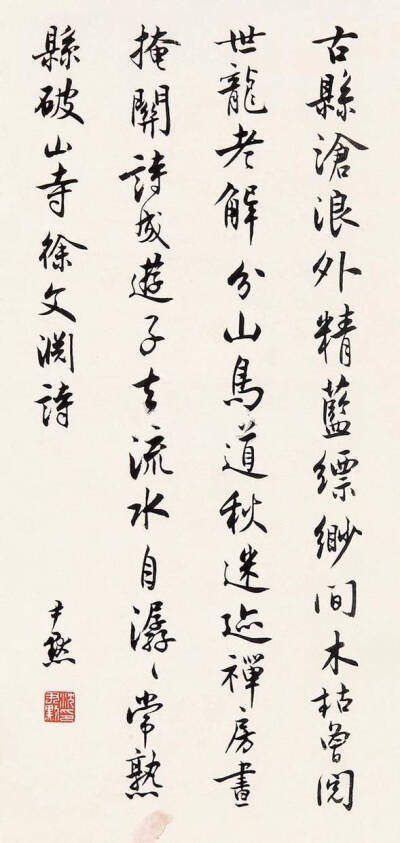 古縣滄浪外精藍縹緲間木枯曾閱
世龍老解分山鳥道秋迷跡禪房晝
掩關詩成遊子去流水自潺〻常熟
縣破山寺徐文淵詩
尹默
沈尹默印